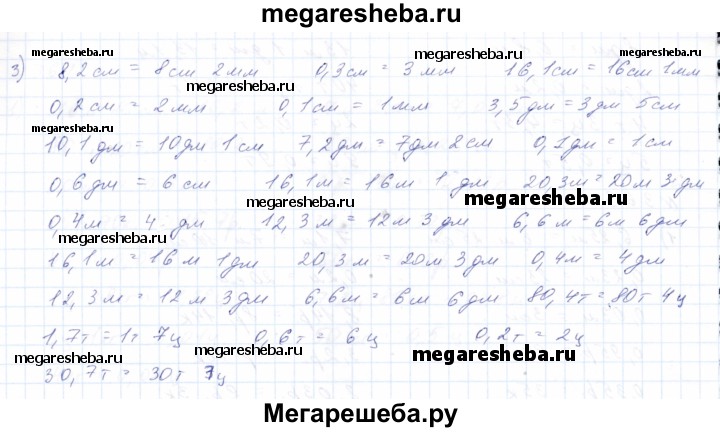 megaresheba.ru
megaresheba.ru
3) 8,2 см = 8 см 2 мм 0,3 см = 3 мм 16,1 см = 16 см 1 мм
megaresheba.ru
0,2 см = 2 мм 0,1 см = 1 мм 3,5 дм = 3 дм 5 см
megaresheba.ru
10,1 дм = 10 дм 1 см 7,2 дм = 7 дм 2 см 0,1 дм = 1 см
0,6 дм = 6 см 16,1 м = 16 м 1 дм 20,3 м = 20 м 3 дм
megaresheba.ru
0,4 м = 4 дм 12,3 м = 12 м 3 дм 6,6 м = 6 м 6 дм
megaresheba.ru
16,1 м = 16 м 1 дм 20,3 м = 20 м 3 дм 0,4 м = 4 дм
12,3 м = 12 м 3 дм 6,6 м = 6 м 6 дм 80,4 т = 80 т 4 ц
1,7 т = 1 т 7 ц 0,6 т = 6 ц 0,2 т = 2 ц
megaresheba.ru megaresheba.ru megaresheba.ru
30,7 т = 30 т 7 ц
Мегарешеба.ру